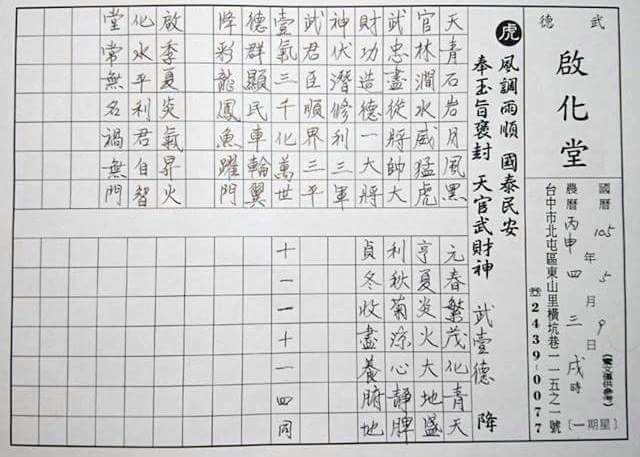 武德
啟化堂
國曆 105 年 5 月 9 日
農曆 丙申 四 三 戌時
(靈文僅供參考)
(星期一)
台中市北屯區東山里橫坑巷一一五之一號
☎2439-0077
虎 風調雨順 國泰民安
奉玉旨褒封 天官武財神 武壹德 降
天青石岩月風黑
官林澗水威猛虎
武忠盡從將帥大
財功造德一大將
神伏潛修利三軍
武君臣順界三平
壹氣三千化萬世
德群顯民車輪翼
降彩龍鳳魚躍門
啟季夏炎氣昇火
化水平利君自智
堂常無名禍無門
元春繁茂化青天
亨夏炎火大地盛
利秋菊涼心靜脾
貞冬收盡養腑地
十一一十一四同